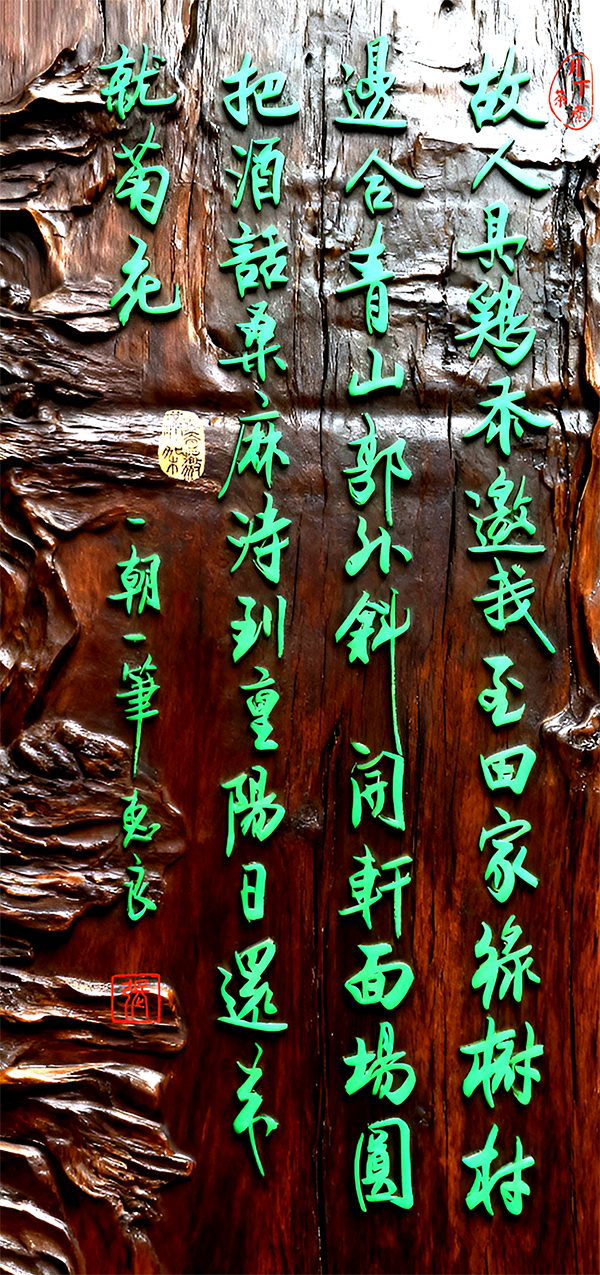 故人具鶏黍邀我至田家綠樹村
邊合青山郭外斜開軒面場圓
把酒話桑麻待到重陽日還来
就菊花
一朝一筆惠良